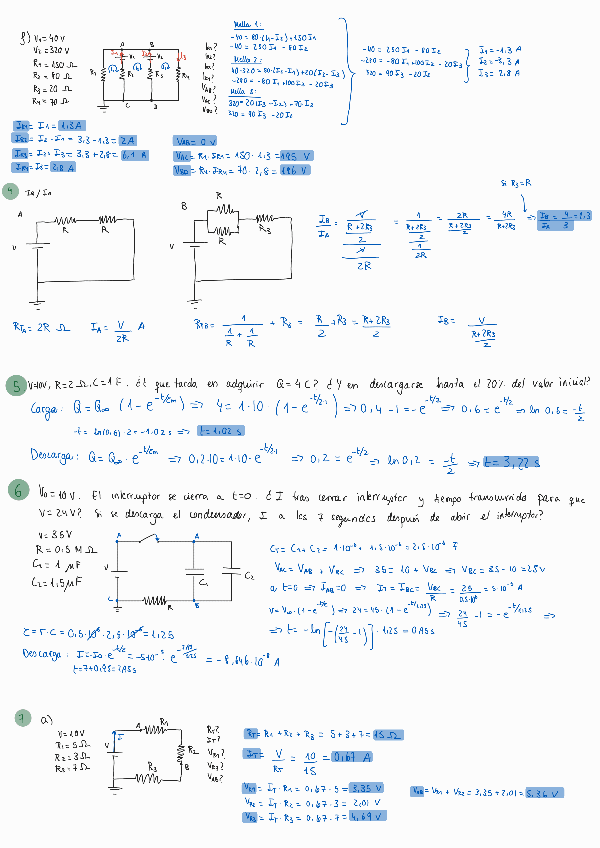 f) V1 = 40 V
V2 = 320 V
R1 = 150 Ω
R2 = 80 Ω
R3 = 20 Ω
R4 = 70 Ω
A B
C D
IR1?
IR2?
IR3?
IR4?
VAB?
VAC?
VBD?
Malla 1:
-40 = 80·(I1-I2) + 150 I1
-40 = 230 I1 - 80 I2
Malla 2:
Malla 3:
320 = 90 I3 - 20 I2
-40 = 230 I1 - 80 I2
-280 = -80 I1 + 100 I2 - 20 I3
320 = 90 I3 - 20 I2
I1 = -1,3 A
I3 = 2,8 A
IR1 = I1 = 1,3 A
IR2 = I2 - I1 = 3,3 - 1,3 = 2 A
IR3 = I2 + I3 = 3,3 + 2,8 = 6,1 A
IR4 = I3 = 2,8 A
VAB = 0 V
VAC = R1 · IR1 = 150 · 1,3 = 195 V
VBD = R4 · IR4 = 70 · 2,8 = 196 V
4 IB / IA
A
V
R R
B
R
R
R3
V
IB/IA = (V/((R+2R3)/2))/(V/2R) = (1/((R+2R3)/2))/(1/2R) = 2R/((R+2R3)/2) = 4R/(R+2R3) => IB/IA = 4/3 = 1,3
Si R3 = R
RTA = 2R Ω IA = V/2R A RTB = 1/(1/R + 1/R) + R3 = R/2 + R3 = (R+2R3)/2 IB = V/((R+2R3)/2)
5 V=10V, R=2 Ω, C=1 F. ¿t que tarda en adquirir Q=4C? ¿Y en descargarse hasta el 20% del valor inicial?
Carga: Q = Q∞ (1-e^(-t/Cm) => 4 = 1·10 (1-e^(-t/2·1) => 0,4 - 1 = -e^(-t/2) => 0,6 = e^(-t/2) => ln 0,6 = -t/2
-t = ln(0,6)·2 = -1,02 s => t = 1,02 s
Descarga: Q = Q∞ · e^(-t/Cm) => 0,2·10 = 1·10·e^(-t/2·1) => 0,2 = e^(-t/2) => ln 0,2 = -t/2 => t = 3,22 s
6 V0 = 10 V. El interruptor se cierra a t=0. ¿I tras cerrar interruptor y tiempo transcurrido para que
V = 24V? Si se descarga el condensador, I a los 7 segundos después de abrir el interruptor?
V = 35 V
R = 0.5 M Ω
C1 = 1 μF
C2 = 1,5 μF
A A
V
C1
C2
C R B
CT = C1 + C2 = 1·10^-6 + 1,5·10^-6 = 2,5·10^-6 F
VAC = VAB + VBC => 35 = 10 + VBC => VBC = 35 - 10 = 25 V
a t=0 => IAB = 0 => IT = IBC = VBC/R = 25/0.5·10^6 = 5·10^-5 A
=> t = -ln[-(24/45 - 1)]·1.25 = 0,95 s
τ = r·C = 0,5·10^6·2,5·10^-6 = 1,25
t = 7 + 0,95 = 7,95 s
7 a)
V = 10 V
R1 = 5 Ω
R2 = 3 Ω
R3 = 7 Ω
I
V
A R1
R2
B
R3
RT?
IT?
VR1?
VR3?
VAB?
RT = R1 + R2 + R3 = 5 + 3 + 7 = 15 Ω
IT = V/RT = 10/15 = 0,67 A
VR1 = IT · R1 = 0,67 · 5 = 3,35 V
VR2 = IT · R2 = 0,67 · 3 = 2,01 V
VR3 = IT · R3 = 0,67 · 7 = 4,69 V
VAB = VR1 + VR2 = 3,35 + 2,01 = 5,36 V